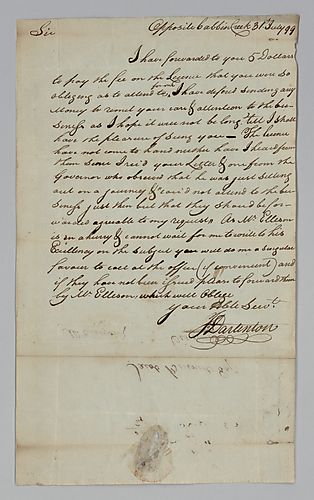 Sir Opposite Cabbin Creek 31 July 99
I have forwarded to you 5 Dollars
to pay the fee on the Licence that you were so
obliging as to attend to, I have defer'd sending any
Money to remit your care & attention to the bu-
siness as I hope it will not be long till I shall
have the pleasure of seeing you — The licence
have not come to hand neither have I heard from
them since I rec'd your Letter & one from the
Governor who observed that he was just setting
out on a journey & cou'd not attend to the bu-
siness just then but that they should be for-
warded agreeable to my request. As Mr. Ellison
is in a hurry & cannot wait for me to write to his
Excellency on the subject you will do me a singular
favour to call at the office (if convenient) and
if they have not been issued please to forward them
by Mr. Ellison, which will Oblige
Your Hble Servt.
Darlinton
Jacob